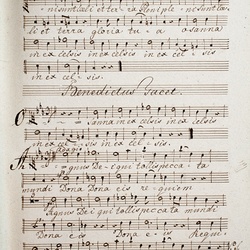 ni sunt caeli et ter ra Pleni ple ni sunt cae
li et terra gloria tu a osanna
in excelsis in excelsis in ex cel
in ex cel sis.
Benedictus Tacet.
O sanna in ex celsis in ex celsis
in ex celsis in ex cel sis.
Adagio
Agnus De i qui tollis pecca ta
mundi Dona Dona eis re quiem
Agnus De i qui tollis pecca ta mundi
Dona eis Dona e is Requi